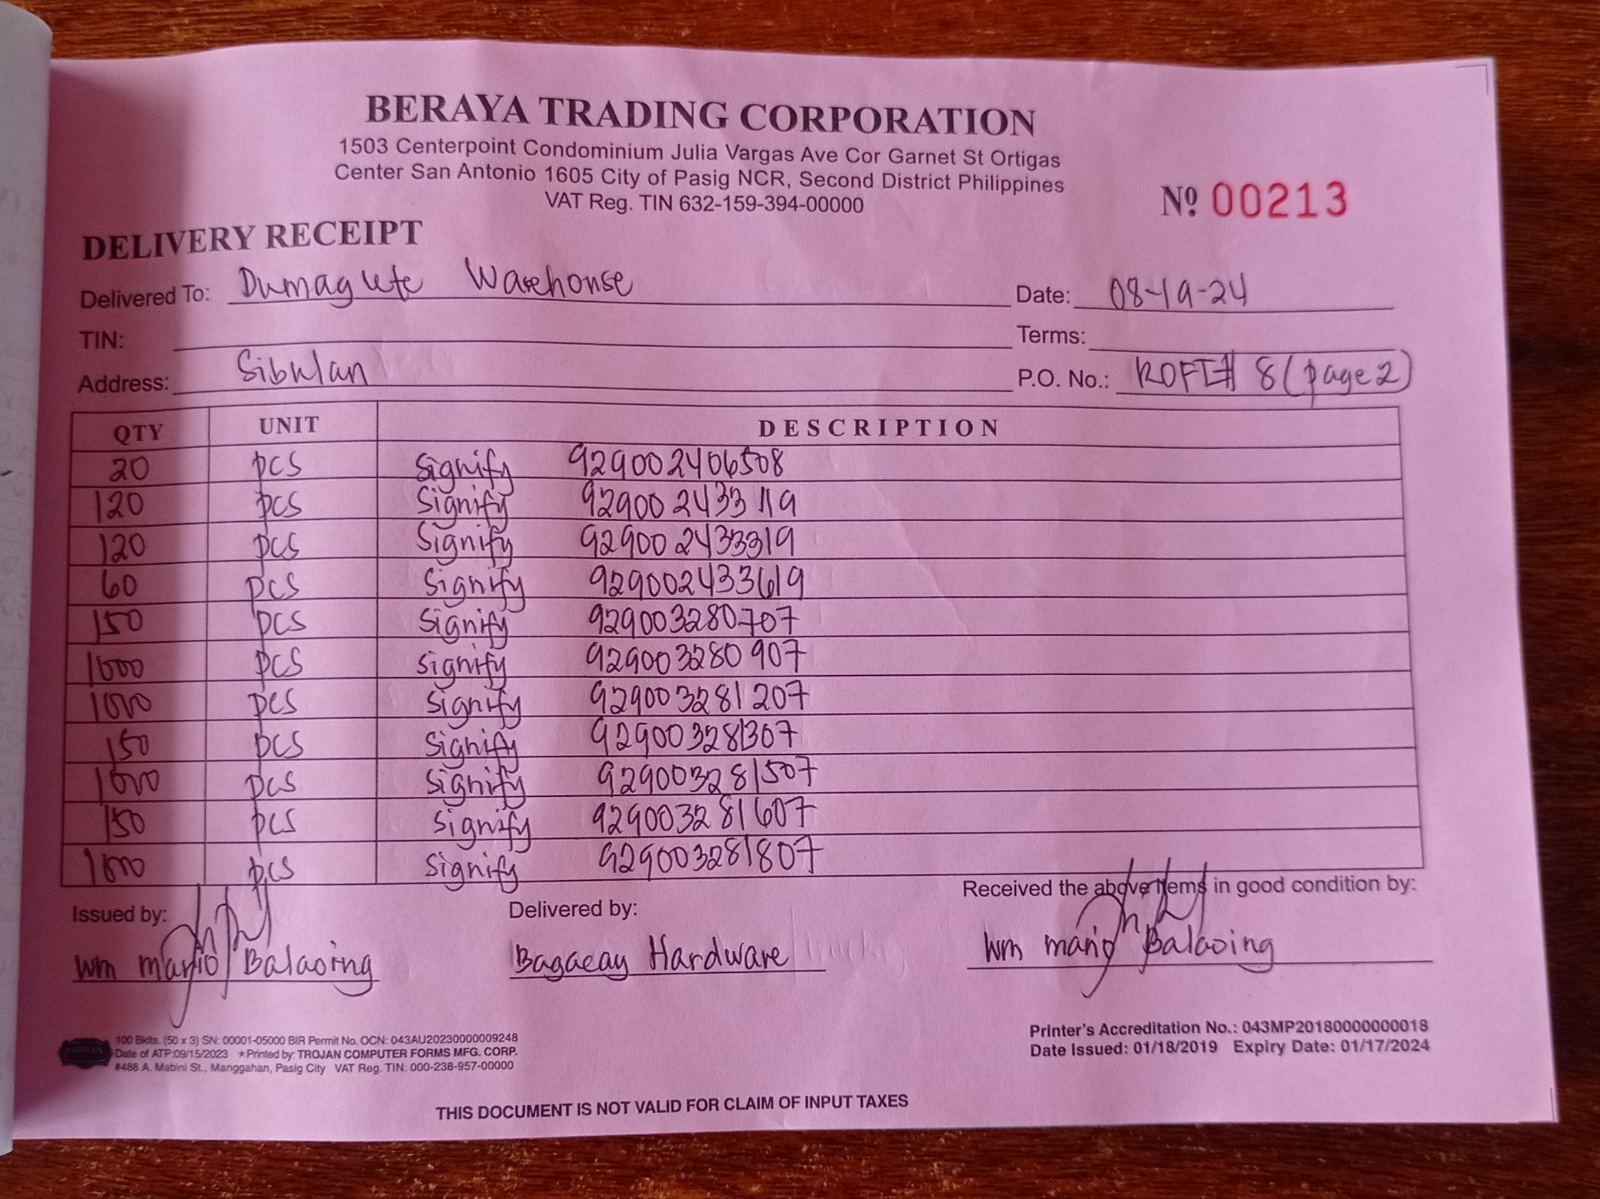 BERAYA TRADING CORPORATION
1503 Centerpoint Condominium Julia Vargas Ave Cor Garnet St Ortigas
Center San Antonio 1605 City of Pasig NCR, Second District Philippines
VAT Reg. TIN 632-159-394-00000
Nº 00213
DELIVERY RECEIPT
Delivered To: Dumaguete Warehouse Date: 08-19-24
TIN: Terms:
Address: Sibulan P.O. No.: ROFI# 8 (page 2)
QTY UNIT DESCRIPTION
20 pcs Signify 929002406508
120 pcs Signify 929002433119
120 pcs Signify 929002433319
60 pcs Signify 929002433619
150 pcs Signify 929003280707
1000 pcs Signify 929003280907
1000 pcs Signify 929003281207
150 pcs Signify 929003281307
1000 pcs Signify 929003281507
150 pcs Signify 929003281607
1000 pcs Signify 929003281807
Issued by: Delivered by: Received the above items in good condition by:
Wm Mario Balaoing Bagacay Hardware Wm Mario Balaoing
100 Bklts. (50 x 3) SN: 00001-05000 BIR Permit No. OCN: 043AU20230000009248
Date of ATP:09/15/2023 *Printed by: TROJAN COMPUTER FORMS MFG. CORP.
#488 A. Mabini St., Manggahan, Pasig City VAT Reg. TIN: 000-238-957-00000
Printer's Accreditation No.: 043MP20180000000018
Date Issued: 01/18/2019 Expiry Date: 01/17/2024
THIS DOCUMENT IS NOT VALID FOR CLAIM OF INPUT TAXES